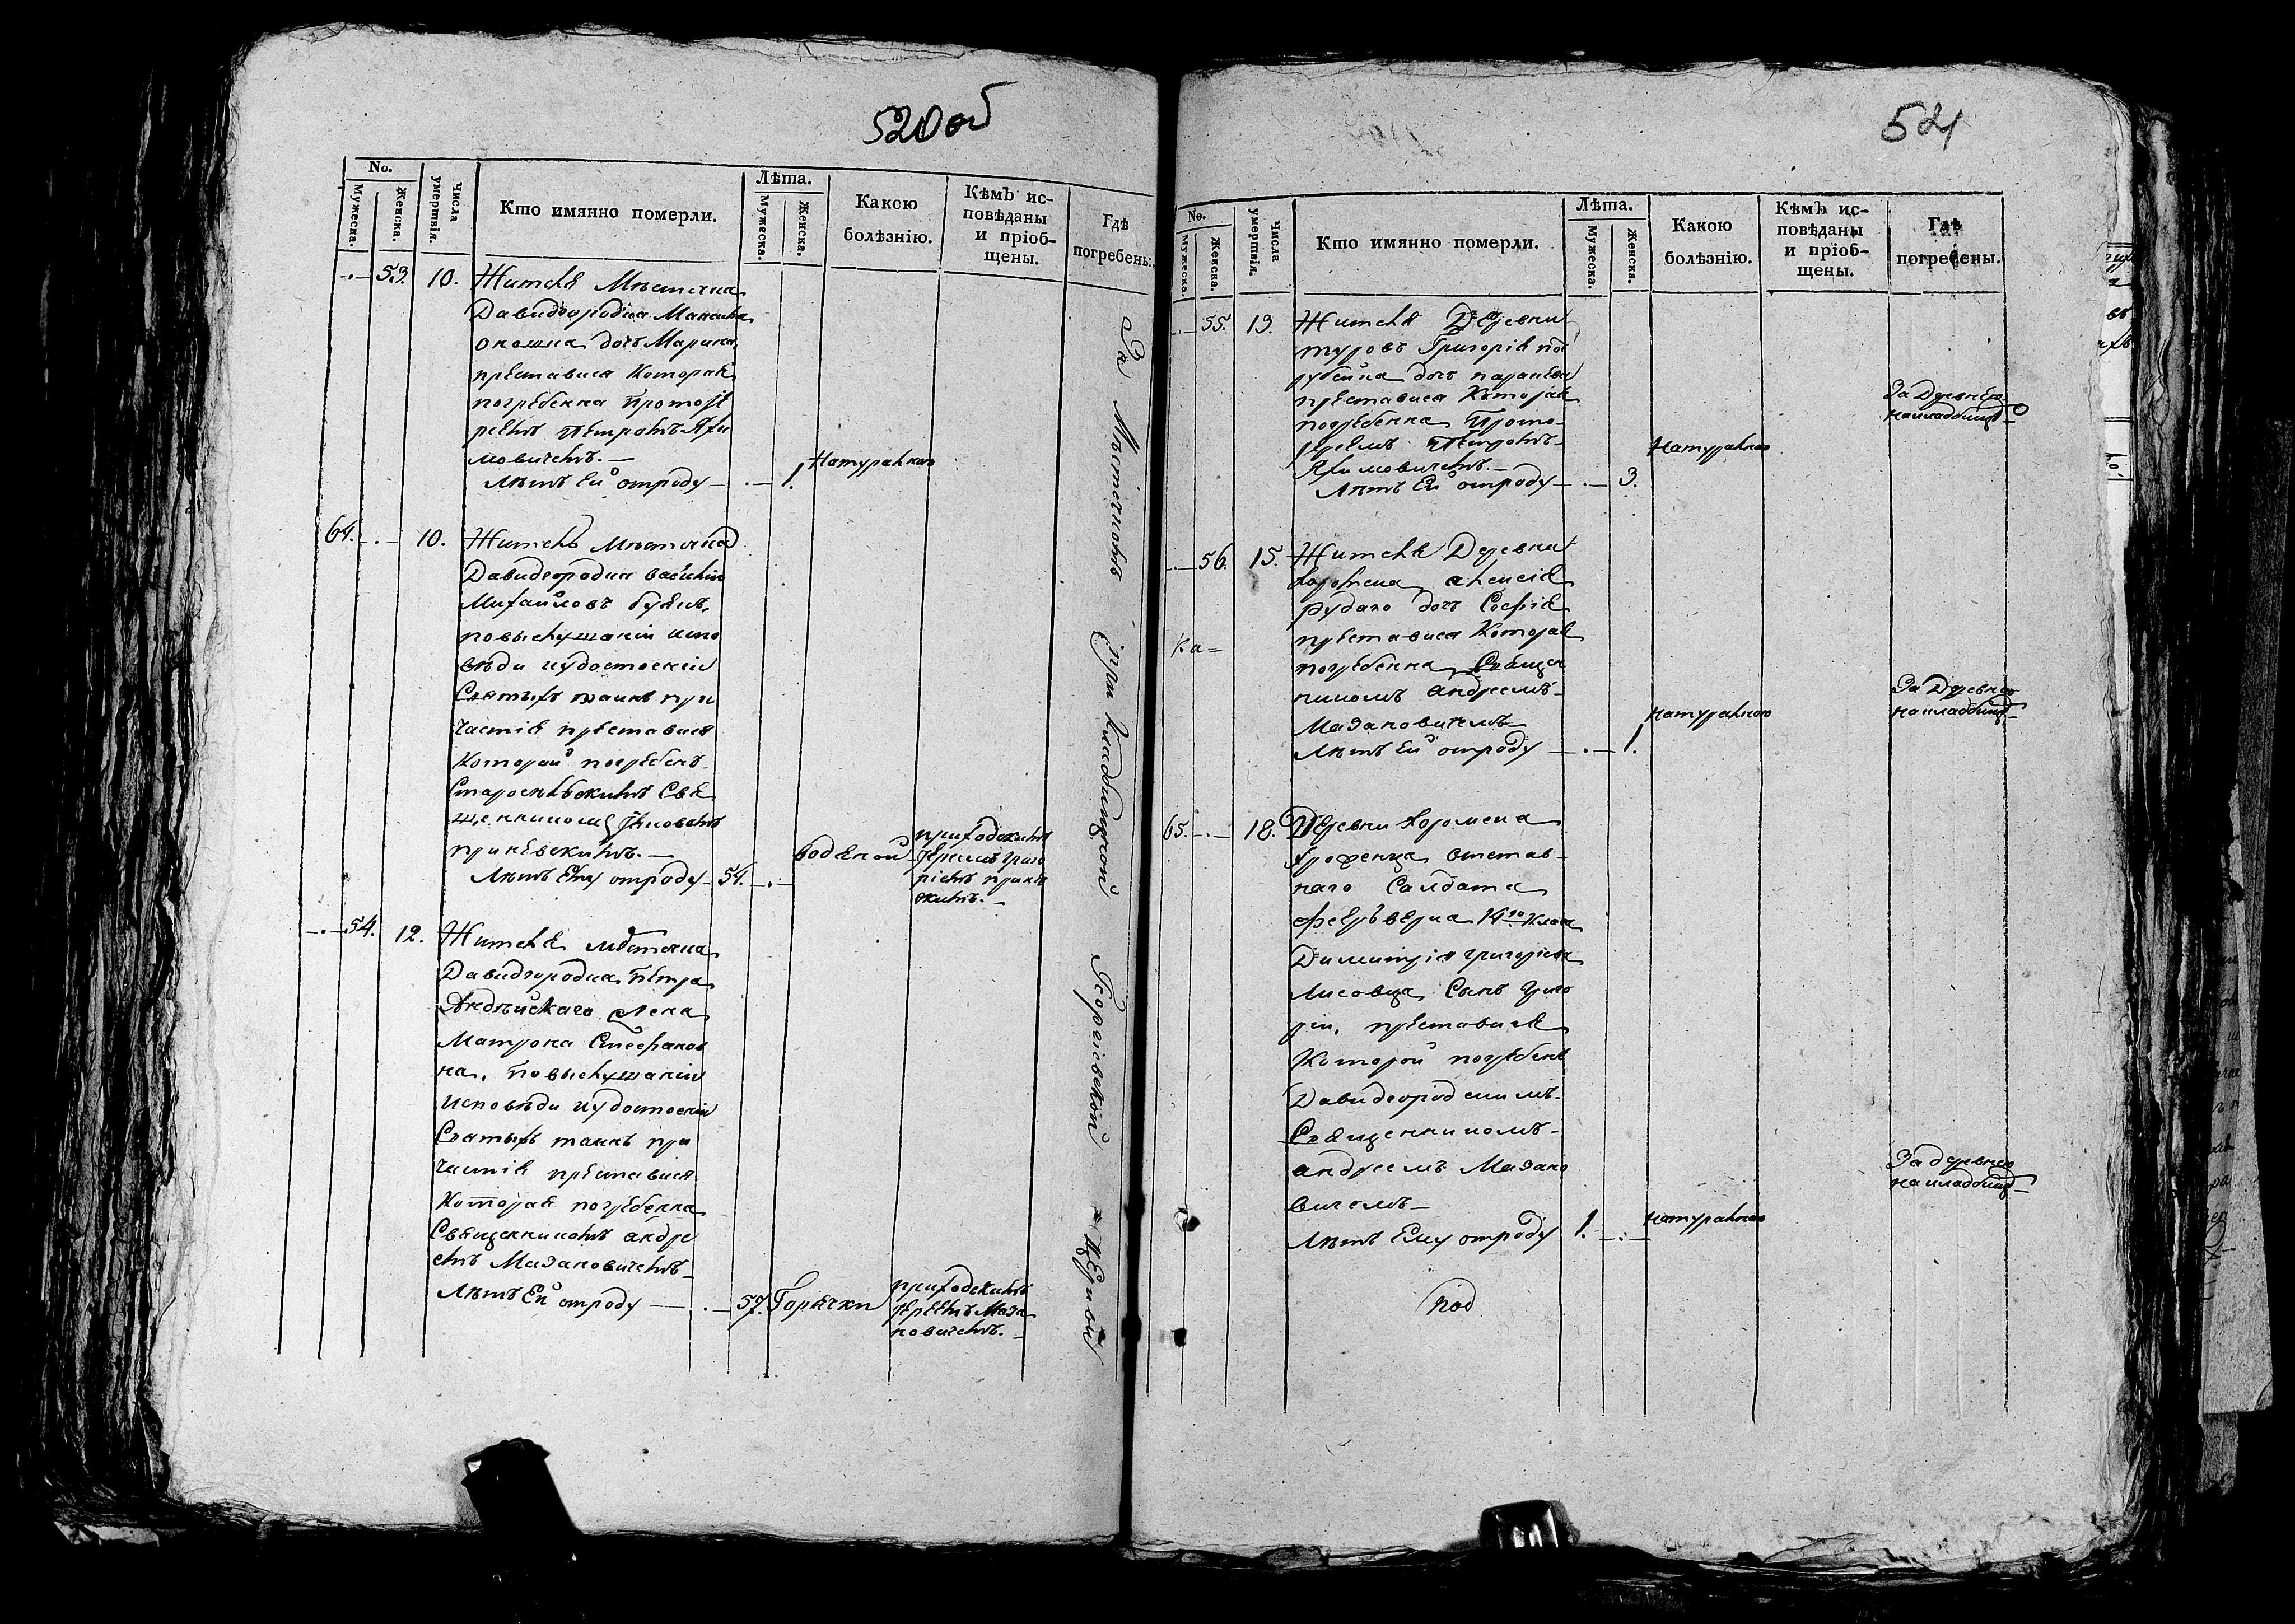 520об
No.
Мужеска.
Женска.
Числа умертвія.
Кто имянно померли.
Лѣта.
Мужеска.
Женска.
Какою болѣзнію.
Кѣмъ исповѣданы и пріобщены.
Гдѣ погребены.
53.
10.
Жителя Мѣстечка
Давидгородка Максима
дочь Марина
преставися которая
погребенна Протоіе
реемъ Петромъ Яхи
мовичемъ.
Лѣтъ Ей отроду
1.
Натуралною
64.
10.
Житель Мѣстечка
Давидгородка Василій
Михайловъ
повыслушаніи испо
вѣди иудостоеніи
Святыхъ таинъ при
частія преставися
Которой погребенъ
Старосельскимъ Свя
щенникомъ Яковомъ
Лѣтъ Ему отроду
54.
водяной
приходскимъ
Іереемъ Григо
ріемъ
54.
12.
Жителя мѣстечка
Давидгородка Петра
жена
Матрона Стефанов
на, повыслушаніи
исповѣди иудостоеніи
Святыхъ таинъ при
частія преставися
Которая погребенна
Священникомъ андре
емъ Мазановичемъ
Лѣтъ Ей отроду
57.
Горячки
приходскимъ
Іереемъ Маза
новичемъ.
За Мѣстечкомъ при кладбищной Георгіевской Церкви
521
No.
Мужеска.
Женска.
Числа умертвія.
Кто имянно померли.
Лѣта.
Мужеска.
Женска.
Какою болѣзнію.
Кѣмъ исповѣданы и пріобщены.
Гдѣ погребены.
55.
13.
Жителя Деревни
туровъ Григорія
дочь параскева
преставися Которая
погребенна Прото
іереемъ Петромъ
Яхимовичемъ.
Лѣтъ Ей отроду
3.
Натуралною
За Деревнею
накладбищѣ
56.
15.
Жителя Деревни
Хоромска алексія
рудаго дочь Софія
преставися Которая
погребенна Священ
никомъ андреемъ
Мазановичемъ
Лѣтъ Ей отроду
1.
натуралною
За Деревнею
накладбищѣ
Ка=
65.
18.
Деревни Хоромска
отстав
наго Салдата
феерверка 14го Клас
Димитрія григоріева
Лисовца Сынъ григо
рій, преставися
Которой погребенъ
Давидгородскимъ
Священникомъ
андреемъ Мазано
вичемъ
Лѣтъ Ему отроду
1.
натуралною
За деревнею
накладбищѣ
под